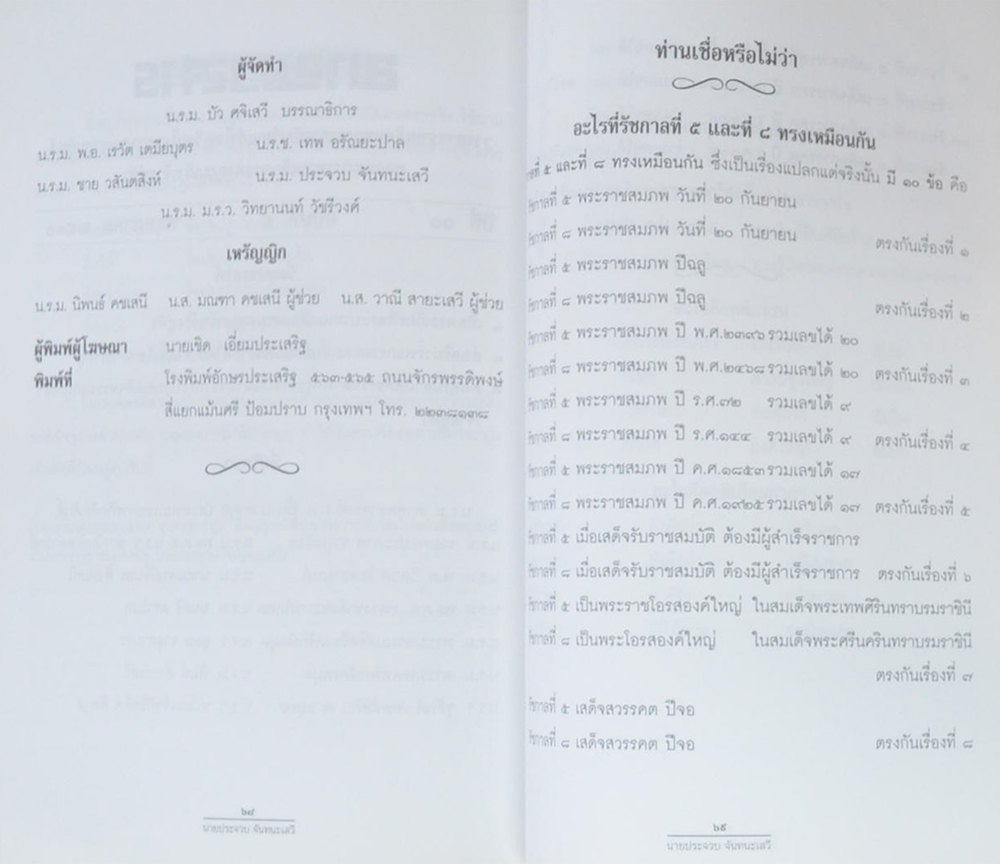 ผู้จัดทำ
น.ร.ม. บัว ศจิเสวี บรรณาธิการ
น.ร.ม. พ.อ. เรวัต เตมียบุตร น.ร.ช. เทพ อรัณยะปาล
น.ร.ม. ชาย วสันตสิงห์ น.ร.ม. ประจวบ จันทนะเสวี
น.ร.ม. ม.ร.ว. วิทยานนท์ วัชรีวงศ์
เหรัญญิก
น.ร.ม. นิพนธ์ คชเสนี น.ส. มณฑา คชเสนี ผู้ช่วย น.ส. วาณี สายะเสวี ผู้ช่วย
ผู้พิมพ์ผู้โฆษณา นายเชิด เอี่ยมประเสริฐ
พิมพ์ที่ โรงพิมพ์อักษรประเสริฐ ๕๖๓-๕๖๕ ถนนจักรพรรดิพงษ์
สี่แยกแม้นศรี ป้อมปราบ กรุงเทพฯ โทร. ๒๒๓๘๑๓๘
๖๘
นายประจวบ จันทนะเสวี
ท่านเชื่อหรือไม่ว่า
อะไรที่รัชกาลที่ ๕ และที่ ๘ ทรงเหมือนกัน
กาลที่ ๕ และที่ ๘ ทรงเหมือนกัน ซึ่งเป็นเรื่องแปลกแต่จริงนั้น มี ๑๐ ข้อ คือ
รัชกาลที่ ๕ พระราชสมภพ วันที่ ๒๐ กันยายน
รัชกาลที่ ๘ พระราชสมภพ วันที่ ๒๐ กันยายน ตรงกันเรื่องที่ ๑
รัชกาลที่ ๕ พระราชสมภพ ปีฉลู
รัชกาลที่ ๘ พระราชสมภพ ปีฉลู ตรงกันเรื่องที่ ๒
รัชกาลที่ ๕ พระราชสมภพ ปี พ.ศ.๒๓๙๖ รวมเลขได้ ๒๐
รัชกาลที่ ๘ พระราชสมภพ ปี พ.ศ.๒๔๖๘ รวมเลขได้ ๒๐ ตรงกันเรื่องที่ ๓
รัชกาลที่ ๕ พระราชสมภพ ปี ร.ศ.๗๒ รวมเลขได้ ๙
รัชกาลที่ ๘ พระราชสมภพ ปี ร.ศ.๑๔๔ รวมเลขได้ ๙ ตรงกันเรื่องที่ ๔
รัชกาลที่ ๕ พระราชสมภพ ปี ค.ศ.๑๘๕๓ รวมเลขได้ ๑๗
รัชกาลที่ ๘ พระราชสมภพ ปี ค.ศ.๑๙๒๕ รวมเลขได้ ๑๗ ตรงกันเรื่องที่ ๕
รัชกาลที่ ๕ เมื่อเสด็จรับราชสมบัติ ต้องมีผู้สำเร็จราชการ
รัชกาลที่ ๘ เมื่อเสด็จรับราชสมบัติ ต้องมีผู้สำเร็จราชการ ตรงกันเรื่องที่ ๖
รัชกาลที่ ๕ เป็นพระราชโอรสองค์ใหญ่ ในสมเด็จพระเทพศิรินทราบรมราชินี
รัชกาลที่ ๘ เป็นพระโอรสองค์ใหญ่ ในสมเด็จพระศรีนครินทราบรมราชินี
ตรงกันเรื่องที่ ๗
รัชกาลที่ ๕ เสด็จสวรรคต ปีจอ
รัชกาลที่ ๘ เสด็จสวรรคต ปีจอ ตรงกันเรื่องที่ ๘
๖๙
นายประจวบ จันทนะเสวี